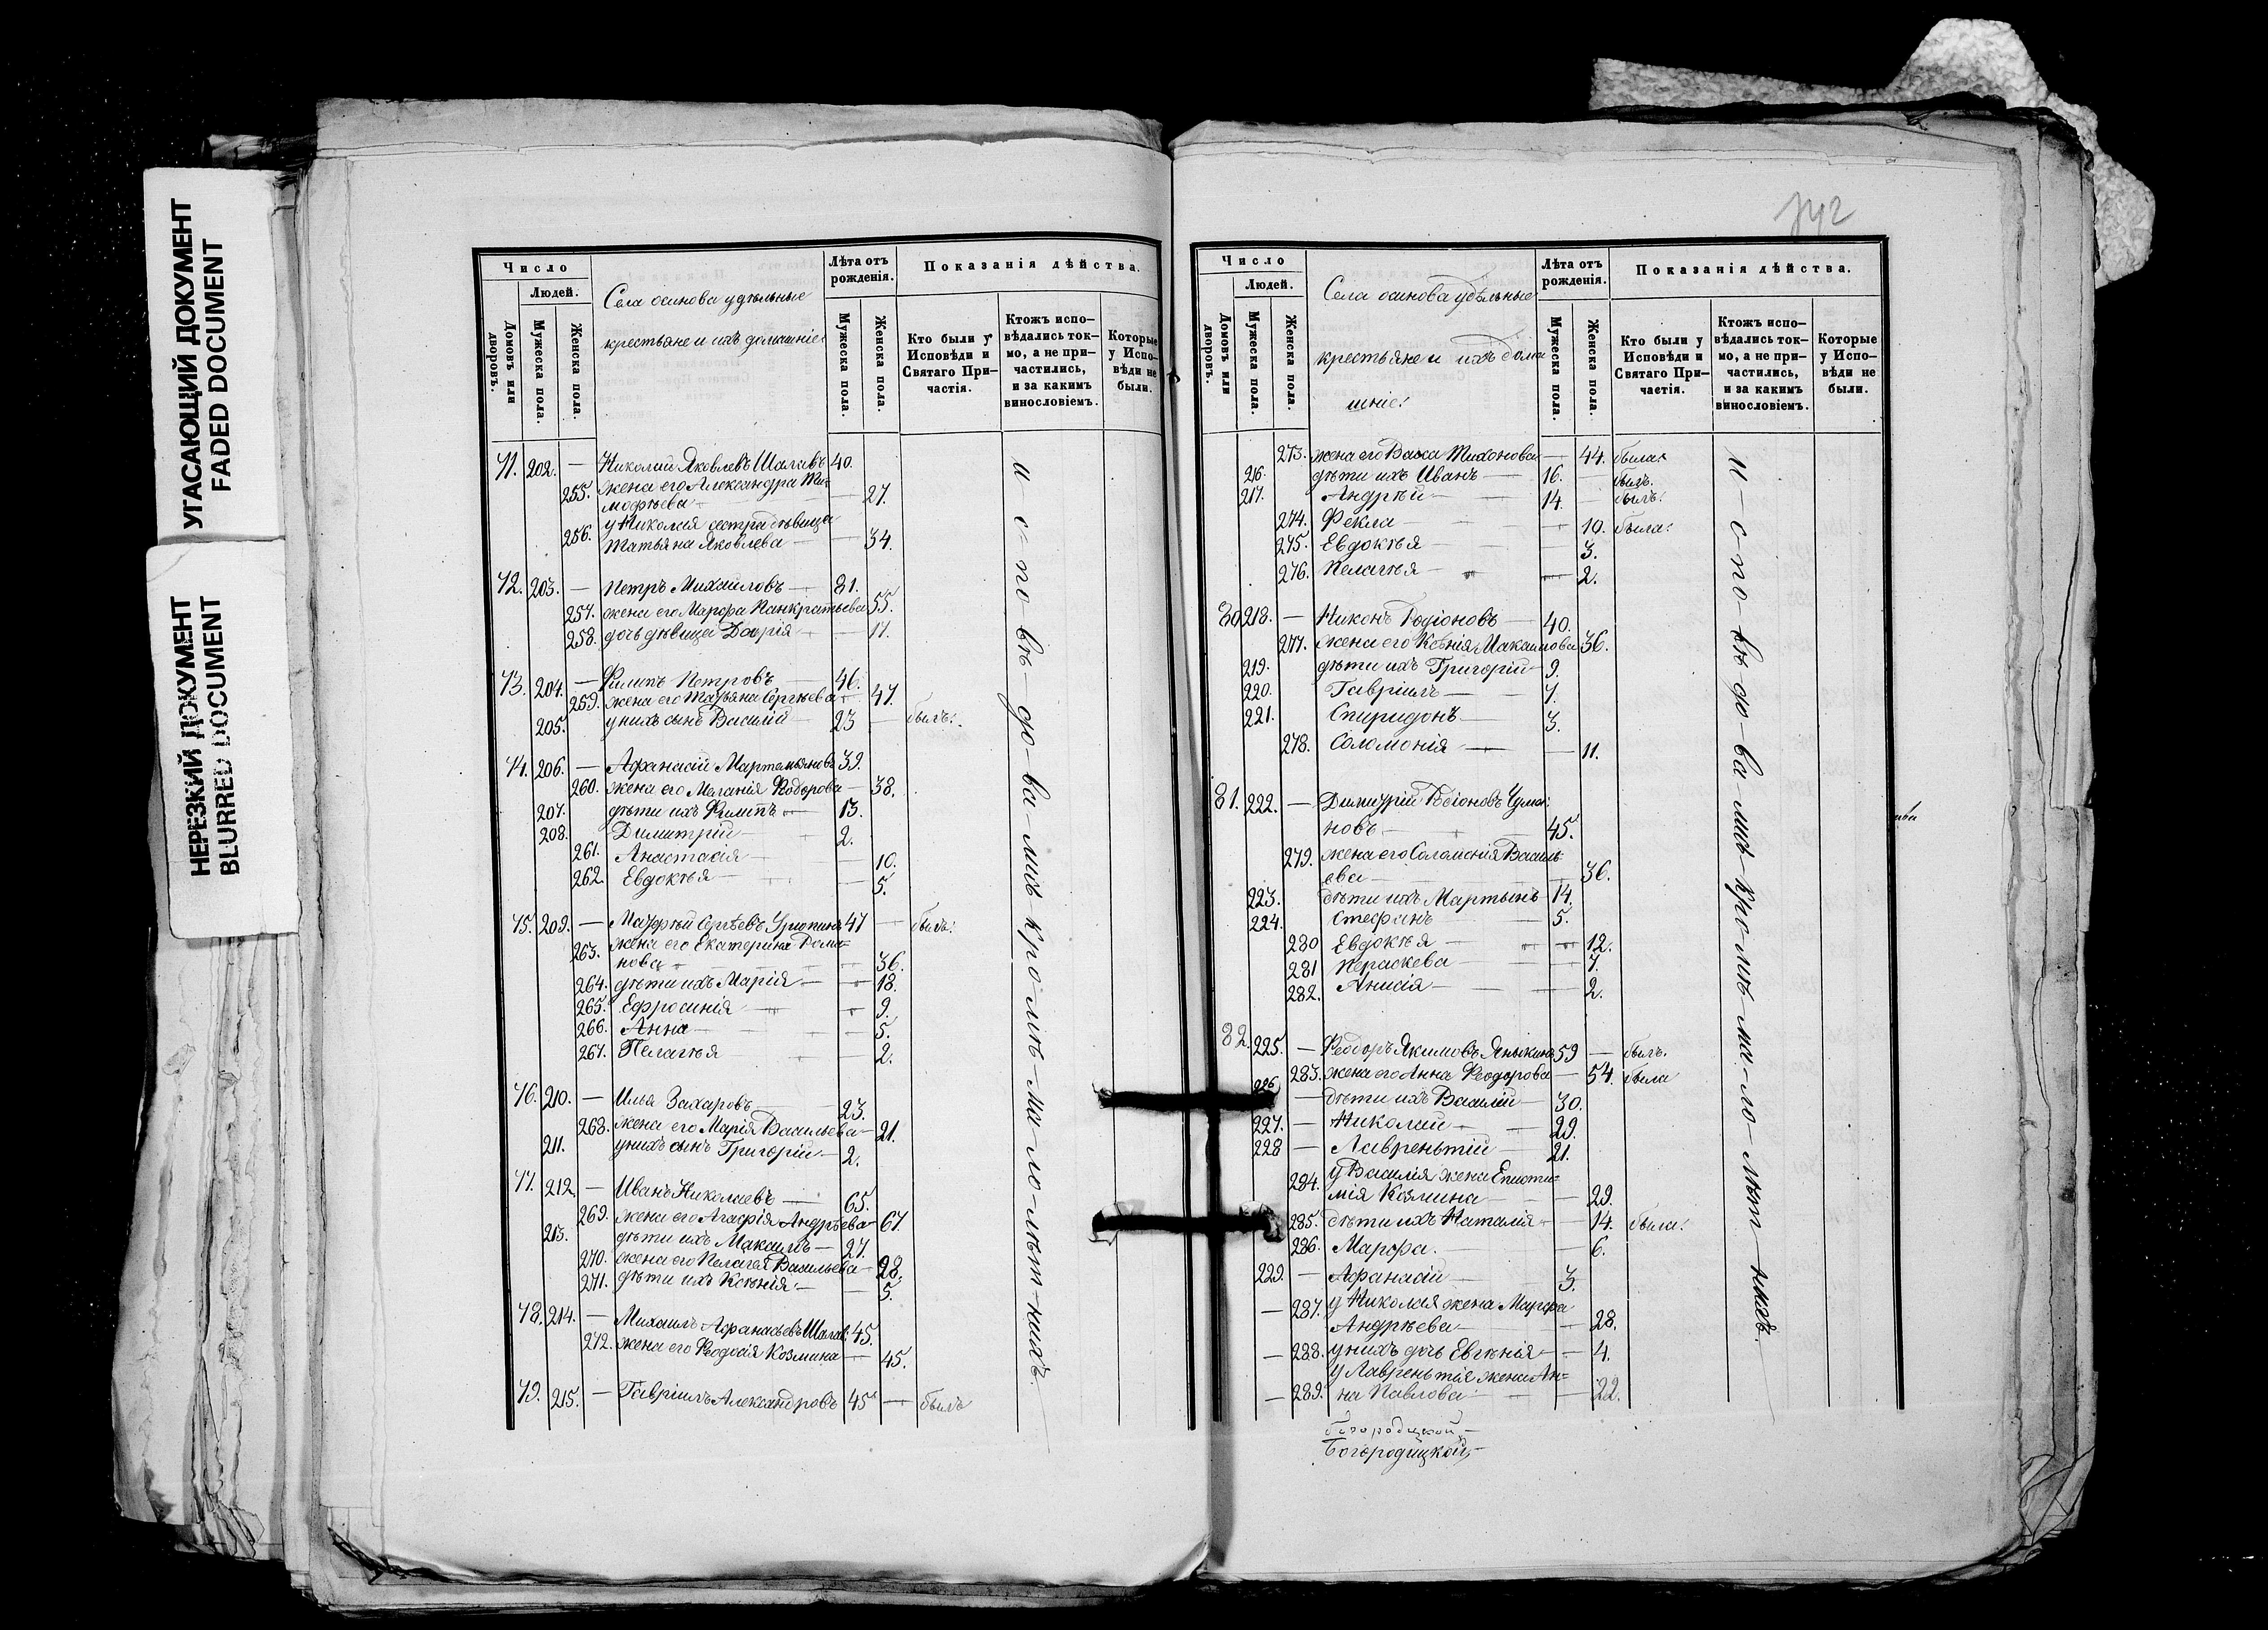 УГАСАЮЩИЙ ДОКУМЕНТ
FADED DOCUMENT
НЕРЕЗКИЙ ДОКУМЕНТ
BLURRED DOCUMENT
Число
Людей.
Домовъ или дворовъ.
Мужеска пола.
Женска пола.
Села осинова удѣльные
крестьяне и ихъ домашніе:
Лѣта отъ рожденія.
Мужеска пола.
Женска пола.
Показанія дѣйства.
Кто были у Исповѣди и Святаго Причастія.
Ктожъ исповѣдались токмо, а не причастились, и за какимъ винословіемъ.
Которые у Исповѣди не были.
71. 202. — Николай Яковлевъ 40.
255. жена его Александра Ти=
мофѣева — 27.
у Николая сестра дѣвица
256. Татьяна Яковлева — — 34.
72. 203. — Петръ Михаиловъ — 81.
257. жена его Марфа Панкратьева 55.
258. дочь дѣвица Дарія — — 17.
73. 204. — Филипъ Петровъ — 46.
259. жена его Татьяна Сергѣева — 47.
205. у нихъ сынъ Василій — 23 — былъ.
74. 206. — Афанасій Мартемьяновъ 39.
260. жена его Меланія Феодорова — 38.
207. дѣти ихъ Филипъ — 13.
208. Димитрій — 2.
261. Анастасія — — 10.
262. Евдокѣя — — 5.
75. 209. — Матфѣй Сергѣевъ 47 — былъ.
263. жена его Екатерина Рома=
нова — — 36.
264. дѣти ихъ Марія — — 18.
265. Ефросинія — — 9.
266. Анна — — 5.
267. Пелагѣя — — 2.
76. 210. — Илья Захаровъ — 23.
268. жена его Марія Васильева — 21.
211. у нихъ сынъ Григорій — 2.
77. 212. — Иванъ Николаевъ — 65.
269. жена его Агафія Андрѣева — 67
213. дѣти ихъ Максимъ — 27.
270. жена его Пелагея Васильева — 28.
271. дѣти ихъ Ксенія — — 5.
78. 214. — Михаилъ Афанасьевъ 45.
272. жена его Феодосія Козмина — 45.
79. 215. — Гавріилъ Александровъ 45 — былъ
и-с-по-вѣ-до-ва-лись кро-мѣ-ма-ло-лѣт-нихъ
Число
Людей.
Домовъ или дворовъ.
Мужеска пола.
Женска пола.
Села осинова удѣльные
крестьяне и ихъ дома
шніе:
Лѣта отъ рожденія.
Мужеска пола.
Женска пола.
Показанія дѣйства.
Кто были у Исповѣди и Святаго Причастія.
Ктожъ исповѣдались токмо, а не причастились, и за какимъ винословіемъ.
Которые у Исповѣди не были.
273. жена его Васса Тихонова — 44. была.
216. дѣти ихъ Иванъ — 16. — былъ.
217. Андрѣй — 14 — былъ.
274. Фекла — — 10. была.
275. Евдокѣя — — 3.
276. Пелагѣя — — 2.
80 218. — Никонъ Родіоновъ — 40.
277. жена его Ксенія Максимова 36.
219. дѣти ихъ Григорій — 9.
220. Гавріилъ — 7.
221. Спиридонъ — 3.
278. Соломонія — — 11.
81. 222. — Димитрій Родіоновъ
новъ — 45.
279. жена его Соломонія Василь
ева — — 36.
223. дѣти ихъ Мартынъ — 14.
224. Стефанъ — 5.
280 Евдокѣя — — 12.
281 Параскева — — 7.
282. Анисія — — 2.
82. 225. — Феодоръ Якимовъ 59 — былъ.
283. жена его Анна Феодорова — 54. была
226 — дѣти ихъ Василій — 30.
227. — Николай — 29.
228 — Лаврентьтій — 21.
у Василія жена Еписти=
284. мія Козмина — — 29.
285. дѣти ихъ Наталія — — 14. была.
286. Марфа. — 6.
229. — Афанасій — 3.
— 287. у Николая жена Марфа
Андрѣева — — 28.
— 288. у нихъ дочь Евгѣнія — — 4.
у Лаврентьтія жена Ан=
— 289. на Павлова — — 22.
и-с-по-вѣ-до-ва-лись кро-мѣ ма-ло-лѣт-нихъ.
богородицкой —
Богородицкой —